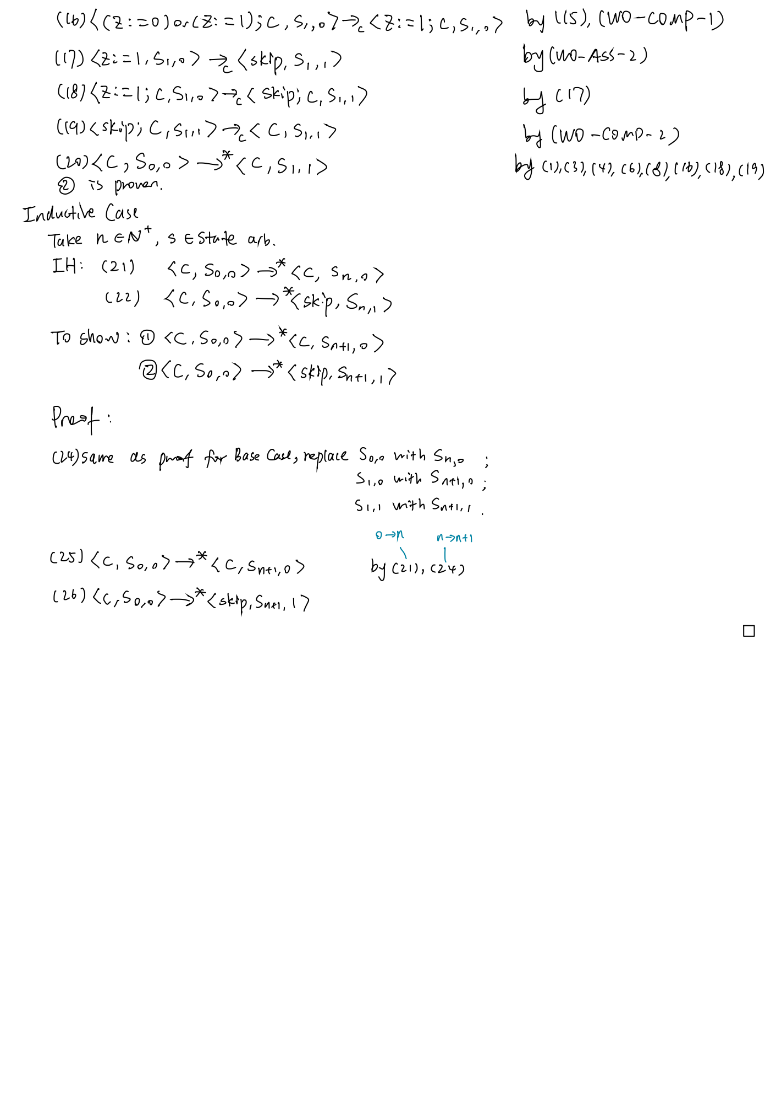 (16) <(z:=0) or (z:=1); C, S₁,₀> →c <z:=1; C, S₁,₀> by (15), (WO-COMP-1)
(17) <z:=1, S₁,₀> →c <skip, S₁,₁> by (WO-ASS-2)
(18) <z:=1; C, S₁,₀> →c <skip; C, S₁,₁> by (17)
(19) <skip; C, S₁,₁> →c <C, S₁,₁> by (WO-COMP-2)
(20) <C, S₀,₀> →* <C, S₁,₁> by (1),(3),(4),(6),(8),(16),(18),(19)
② is proven.
Inductive Case
Take n ∈ N⁺, s ∈ State arb.
IH: (21) <C, S₀,₀> →* <C, Sn,₀>
(22) <C, S₀,₀> →* <skip, Sn,₁>
To show: ① <C, S₀,₀> →* <C, Sn+1,₀>
② <C, S₀,₀> →* <skip, Sn+1,₁>
Proof:
(24) same as proof for Base Case, replace S₀,₀ with Sn,₀ ;
S₁,₀ with Sn+1,₀ ;
S₁,₁ with Sn+1,₁ .
0→n n→n+1
(25) <C, S₀,₀> →* <C, Sn+1,₀> by (21), (24)
(26) <C, S₀,₀> →* <skip, Sn+1,₁>
□